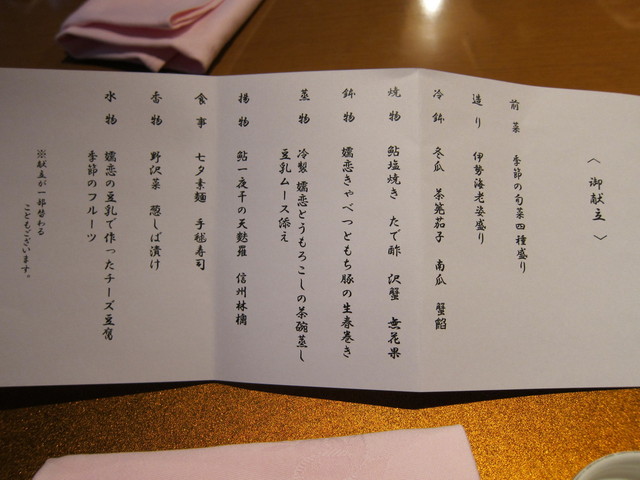 〈 御献立 〉
前菜 季節の旬菜四種盛り
造り 伊勢海老姿盛り
冷鉢 冬瓜 茶筅茄子 南瓜 蟹餡
焼物 鮎塩焼き たで酢 沢蟹 無花果
鉢物 嬬恋きゃべつともち豚の生春巻き
蒸物 冷製 嬬恋とうもろこしの茶碗蒸し
豆乳ムース添え
揚物 鮎一夜干の天麩羅 信州林檎
食事 七夕素麺 手毬寿司
香物 野沢菜 葱しば漬け
水物 嬬恋の豆乳で作ったチーズ豆腐
季節のフルーツ
※献立が一部替わる
こともございます。